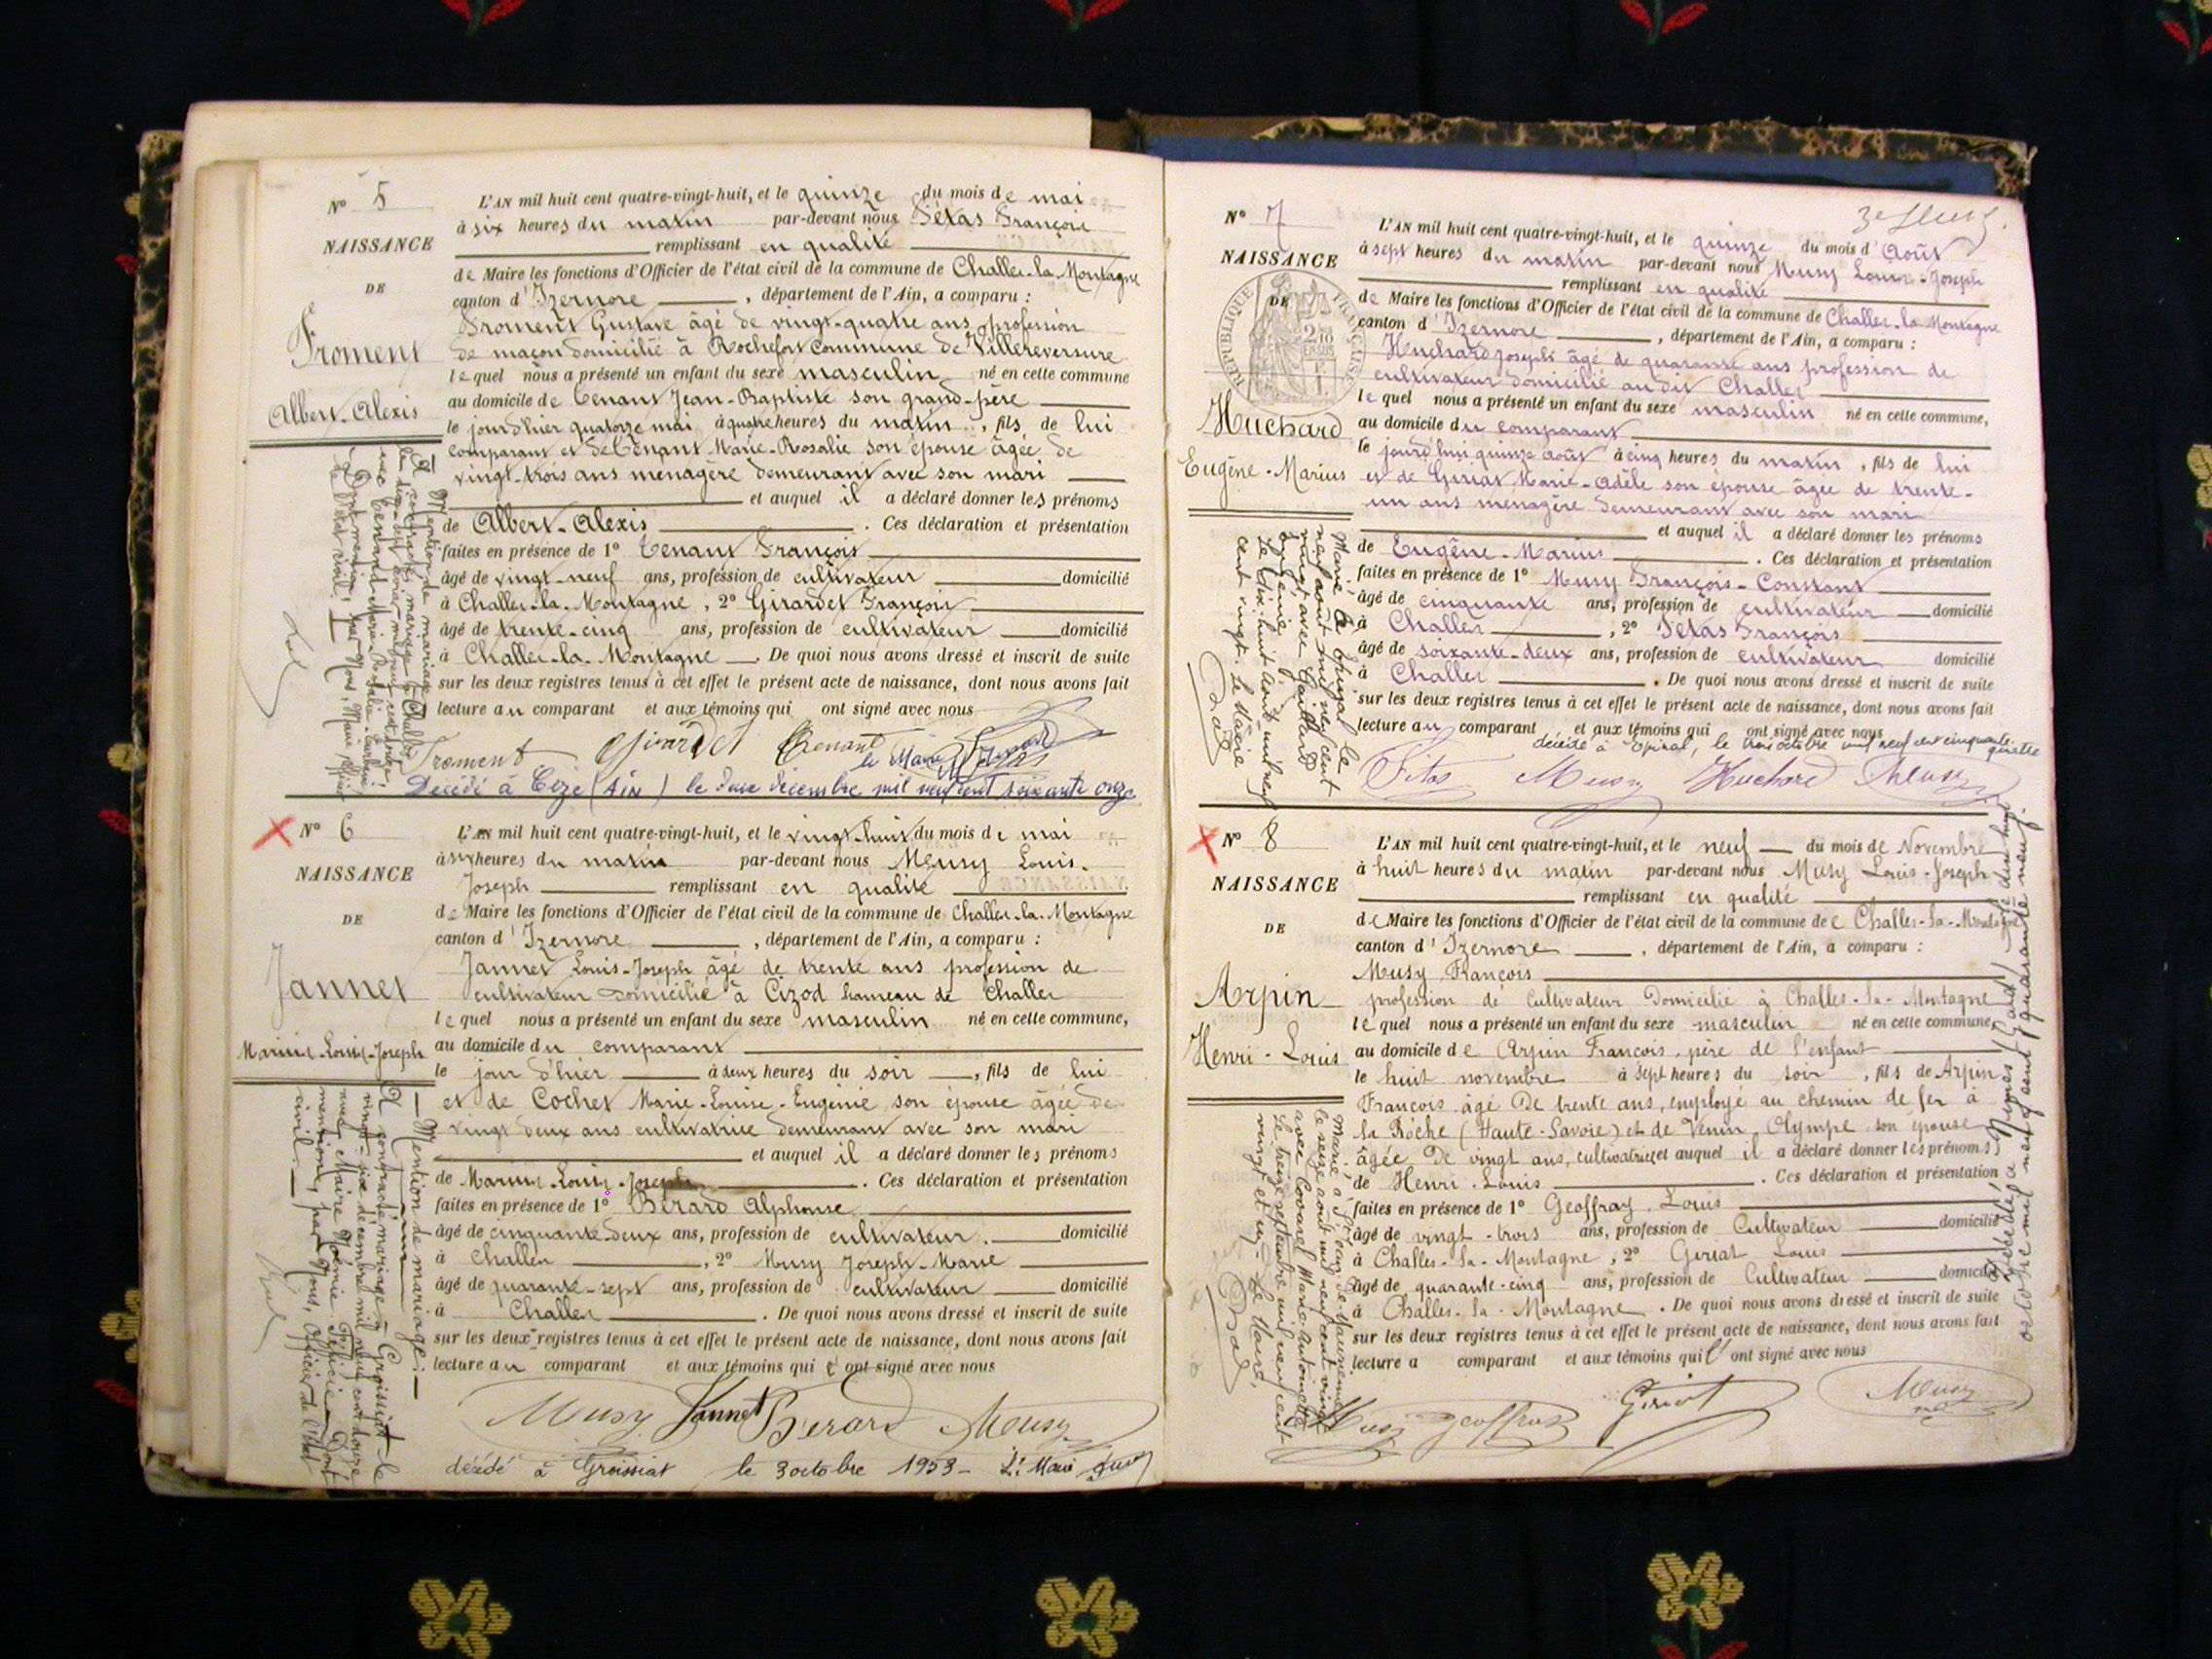 N° 5
NAISSANCE
DE
Froment
Albert-Alexis
L'AN mil huit cent quatre-vingt-huit, et le quinze du mois de mai
à six heures du matin par-devant nous Tétas François
remplissant en qualité
de Maire les fonctions d'Officier de l'état civil de la commune de Challes-la-Montagne
canton d'Izernore, département de l'Ain, a comparu :
Froment Gustave âgé de vingt-quatre ans profession
de maçon domicilié à Rochefort commune de Villereversure
lequel nous a présenté un enfant du sexe masculin né en cette commune
au domicile de Tenant Jean-Baptiste son grand-père
le jour d'hier quatorze mai à quatre heures du matin, fils de lui
comparant et de Tenant Marie-Rosalie son épouse âgée de
vingt-trois ans ménagère demeurant avec son mari
et auquel il a déclaré donner les prénoms
de Albert-Alexis. Ces déclaration et présentation
faites en présence de 1° Tenant François
âgé de vingt-neuf ans, profession de cultivateur domicilié
à Challes-la-Montagne, 2° Girardet François
âgé de trente-cinq ans, profession de cultivateur domicilié
à Challes-la-Montagne. De quoi nous avons dressé et inscrit de suite
sur les deux registres tenus à cet effet le présent acte de naissance, dont nous avons fait
lecture au comparant et aux témoins qui ont signé avec nous
Froment Girardet Tenant
le Maire
Décédé à Cize (Ain) le douze décembre mil neuf cent soixante onze
Mention de mariage
A contracté mariage à Challes,
N° 6
NAISSANCE
DE
Jannet
Marius-Louis-Joseph
L'AN mil huit cent quatre-vingt-huit, et le vingt-huit du mois de mai
à six heures du matin par-devant nous Musy Louis-
Joseph remplissant en qualité
de Maire les fonctions d'Officier de l'état civil de la commune de Challes-la-Montagne
canton d'Izernore, département de l'Ain, a comparu :
Jannet Louis-Joseph âgé de trente ans profession de
cultivateur domicilié à Cizod hameau de Challes
lequel nous a présenté un enfant du sexe masculin né en cette commune,
au domicile du comparant
le jour d'hier à deux heures du soir, fils de lui
et de Cochet Marie-Louise-Eugénie son épouse âgée de
vingt deux ans cultivatrice demeurant avec son mari
et auquel il a déclaré donner les prénoms
de Marius-Louis-Joseph. Ces déclaration et présentation
faites en présence de 1° Bérard Alphonse
âgé de cinquante-deux ans, profession de cultivateur domicilié
à Challes, 2° Musy Joseph-Marie
âgé de quarante-sept ans, profession de cultivateur domicilié
à Challes. De quoi nous avons dressé et inscrit de suite
sur les deux registres tenus à cet effet le présent acte de naissance, dont nous avons fait
lecture au comparant et aux témoins qui ont signé avec nous
Musy Jannet Berard Musy
décédé à Groissiat le 3 octobre 1953 - Le Maire
Mention de mariage :
A contracté mariage à Groissiat le
vingt-six décembre mil neuf cent douze
avec Maire Noémie Félicie. Dont
mention, par Nous, Officier de l'état
civil.
N° 7
NAISSANCE
DE
RÉPUBLIQUE FRANÇAISE
Huchard
Eugène-Marius
L'AN mil huit cent quatre-vingt-huit, et le quinze du mois d'Août
à sept heures du matin par-devant nous Musy Louis-Joseph
remplissant en qualité
de Maire les fonctions d'Officier de l'état civil de la commune de Challes-la-Montagne
canton d'Izernore, département de l'Ain, a comparu :
Huchard Joseph âgé de quarante ans profession de
cultivateur domicilié au dit Challes
lequel nous a présenté un enfant du sexe masculin né en cette commune,
au domicile du comparant
le jourd'hui quinze Août à cinq heures du matin, fils de lui
et de Guriat Marie-Adèle son épouse âgée de trente-
un ans ménagère demeurant avec son mari
et auquel il a déclaré donner les prénoms
de Eugène-Marius. Ces déclaration et présentation
faites en présence de 1° Musy François-Constant
âgé de cinquante ans, profession de cultivateur domicilié
à Challes, 2° Tétas François
âgé de soixante-deux ans, profession de cultivateur domicilié
à Challes. De quoi nous avons dressé et inscrit de suite
sur les deux registres tenus à cet effet le présent acte de naissance, dont nous avons fait
lecture au comparant et aux témoins qui ont signé avec nous
décédé à Epinal, le trois octobre mil neuf cent cinquante
quatre
Musy Huchard
Marié à Epinal le
neuf août mil neuf cent
vingt, avec Gaillard
Eugénie
Le dix huit août mil neuf
cent vingt. Le Maire
N° 8
NAISSANCE
DE
Arpin
Henri-Louis
L'AN mil huit cent quatre-vingt-huit, et le neuf du mois de Novembre
à huit heures du matin par-devant nous Musy Louis-Joseph
remplissant en qualité
de Maire les fonctions d'Officier de l'état civil de la commune de Challes-la-Montagne
canton d'Izernore, département de l'Ain, a comparu :
Musy François
profession de Cultivateur Domicilié à Challes-la-Montagne
lequel nous a présenté un enfant du sexe masculin né en cette commune,
au domicile de Arpin François, père de l'enfant
le huit novembre à sept heures du soir, fils de Arpin
François âgé De trente ans, employé au chemin de fer à
la Roche (Haute-Savoie) et de Venin, Olympe son épouse
âgée De vingt ans, cultivatrice et auquel il a déclaré donner les prénoms
de Henri-Louis. Ces déclaration et présentation
faites en présence de 1° Geoffray Louis
âgé de vingt-trois ans, profession de Cultivateur domicilié
à Challes-la-Montagne, 2° Guriat Louis
âgé de quarante-cinq ans, profession de Cultivateur domicilié
à Challes-la-Montagne. De quoi nous avons dressé et inscrit de suite
sur les deux registres tenus à cet effet le présent acte de naissance, dont nous avons fait
lecture a comparant et aux témoins qui ont signé avec nous
Musy Geoffray Guriat Musy
le seize août mil neuf cent vingt
Le treize septembre mil neuf cent
vingt et un. Le Maire,
octobre mil neuf cent quarante neuf